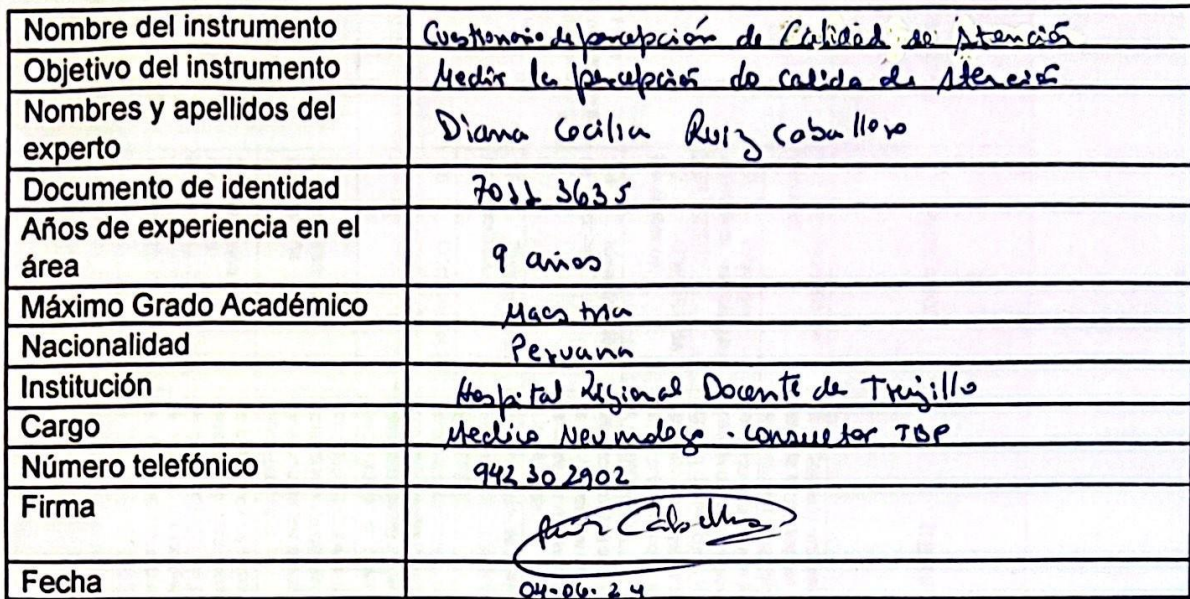 Nombre del instrumento Cuestionario de percepción de Calidad de Atención
Objetivo del instrumento Medir la percepción de calida de Atención
Nombres y apellidos del
experto Diana Cecilia Ruiz Caballero
Documento de identidad 7011 3635
Años de experiencia en el
área 9 años
Máximo Grado Académico Maestria
Nacionalidad Peruana
Institución Hospital Regional Docente de Trujillo
Cargo Medico Neumologo - consultor TBP
Número telefónico 942302902
Firma Ruiz Caballero
Fecha 04-06-24